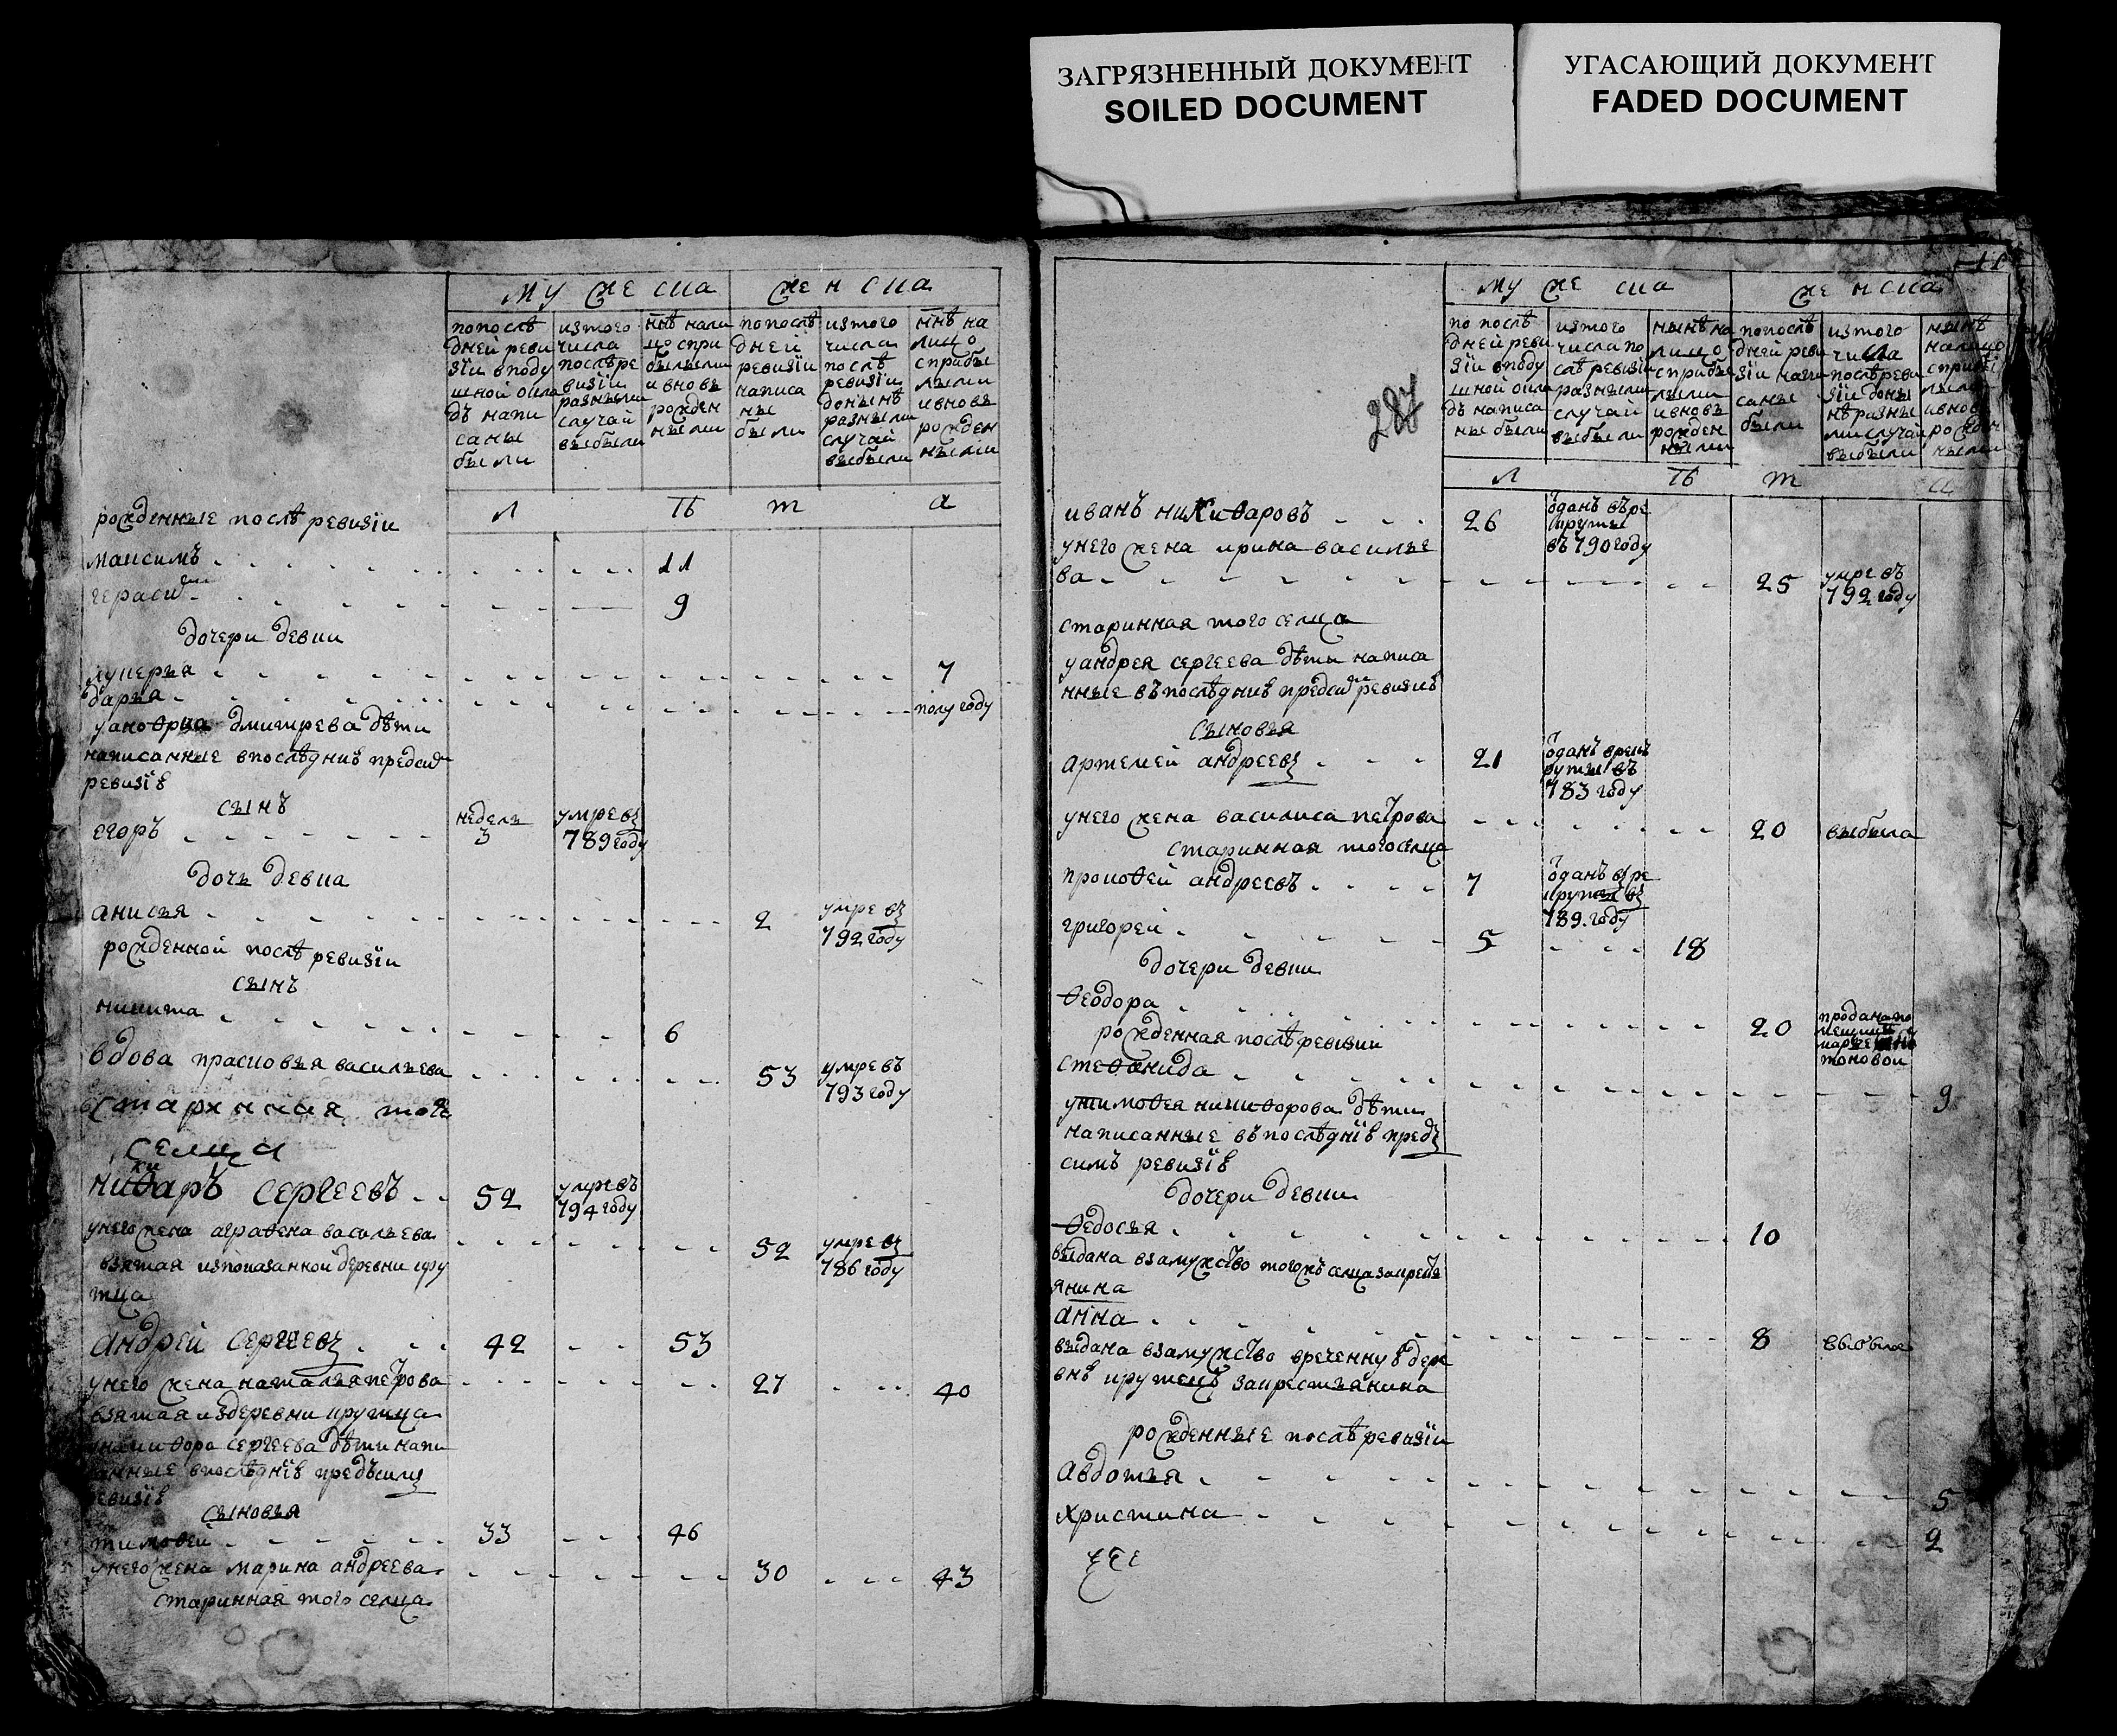 ЗАГРЯЗНЕННЫЙ ДОКУМЕНТ
SOILED DOCUMENT
УГАСАЮЩИЙ ДОКУМЕНТ
FADED DOCUMENT
мужеска женска
попослѣ
дней реви
зїи вподу
шной окла
дъ напи
саны
были
изтого
числа
послѣ ре
визїи
разными
случаи
выбыли
ннѣ нали
цо спри
былыми
ивновь
рожден
ными
попослѣ
дней
ревизїи
написа
ны
были
изтого
числа
послѣ
ревизїи
донынѣ
разными
случаи
выбыли
ннѣ на
лицо
сприбы
лыми
ивновь
рожден
ными
л ѣ т а
рожденные послѣ ревизїи
максимъ 11
герасим 9
дочери девки
лукерья 7
дарья полугоду
дмитрева дѣти
написанные впослѣдниѣ предсим
ревизїѣ
сынъ
егоръ недель 3 умре въ 789 году
дочь девка
анисья 2 умре въ 792 году
рожденной послѣ ревизїи
сынъ
никита 6
вдова прасковья васильева 53 умре въ 793 году
старинная того
селца
никифаръ сергеевъ 52 умре въ 794 году
унего жена аграфена васильева 52 умре въ 786 году
взятая изпоказанной деревни кру
тца
андрей сергеевъ 42 53
унего жена наталья петрова 27 40
взятая издеревни крутца
сергеева дѣти напи
санные впослѣднїѣ предъсимъ
ревизїѣ
сыновья
тимофей 33 46
унего жена марина андреева 30 43
старинная того селца
287
муже ска женска
по послѣ
дней реви
зїи вподу
шной окла
дъ написа
ны были
изтого
числа по
слѣ ревизїи
разными
случаи
выбыли
нынѣ на
лицо
сприбы
лыми
ивновь
рожден
ными
попослѣ
дней реви
зїи напи
саны
были
изтого
числа
послѣ реви
зїи доны
нѣ разны
ми случаи
выбыли
нынѣ
налицо
сприбы
лыми
ивновь
рожден
ными
л ѣ т а
иванъ никифаровъ 26 отданъ вре
круты
въ 790 году
унего жена ирина василье
ва 25 умре въ 792 году
старинная того селца
уандрея сергеева дѣти написа
нные въпослѣдниѣ предсим ревизиѣ
сыновья
артемей андреевъ 21 отданъ врек
руты въ
783 году
унего жена василиса петрова 20 выбыла
старинная тогоселца
прокофей андреевъ 7 отданъ вре
круты въ
789 году
григорей 5 18
дочери девки
феодора 20 продана по
мещице
тоновой
рожденная послѣ ревизии
стефанида 9
утимофея никифорова дѣти
написанные въпослѣднїѣ предъ
симъ ревизїѣ
дочери девки
федосья 10
выдана взамужство тогожъ селца закресть
янина
анна 8 выбыла
выдана взамужство вреченную дере
внѣ крутецъ закрестьянина
рожденные послѣ ревизїи
авдотья 5
христина 2